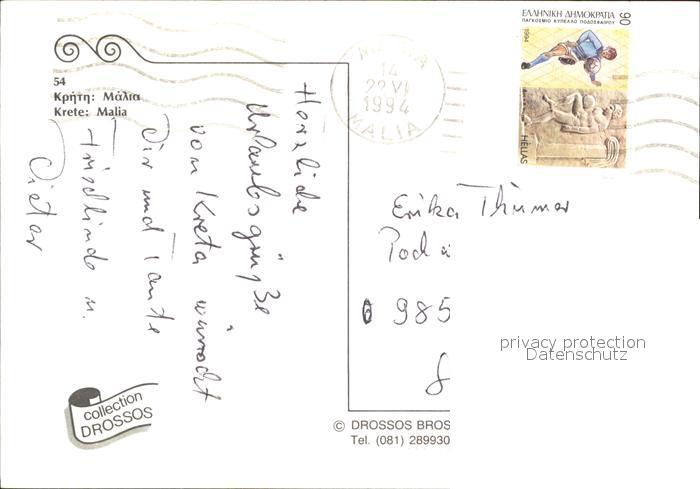 ΕΛΛΗΝΙΚΗ ΔΗΜΟΚΡΑΤΙΑ
ΠΑΓΚΟΣΜΙΟ ΚΥΠΕΛΛΟ ΠΟΔΟΣΦΑΙΡΟΥ
90
1994
HELLAS
14
22 VI
1994
MALIA
54
Κρήτη: Μάλια
Krete: Malia
Herzliche
Urlaubsgrüße
von Kreta wünscht
Dir und Tante
Friedlinde u.
Dieter
Erika
Pod
985
privacy protection
Datenschutz
collection
DROSSOS
© DROSSOS BROS
Tel. (081) 289930